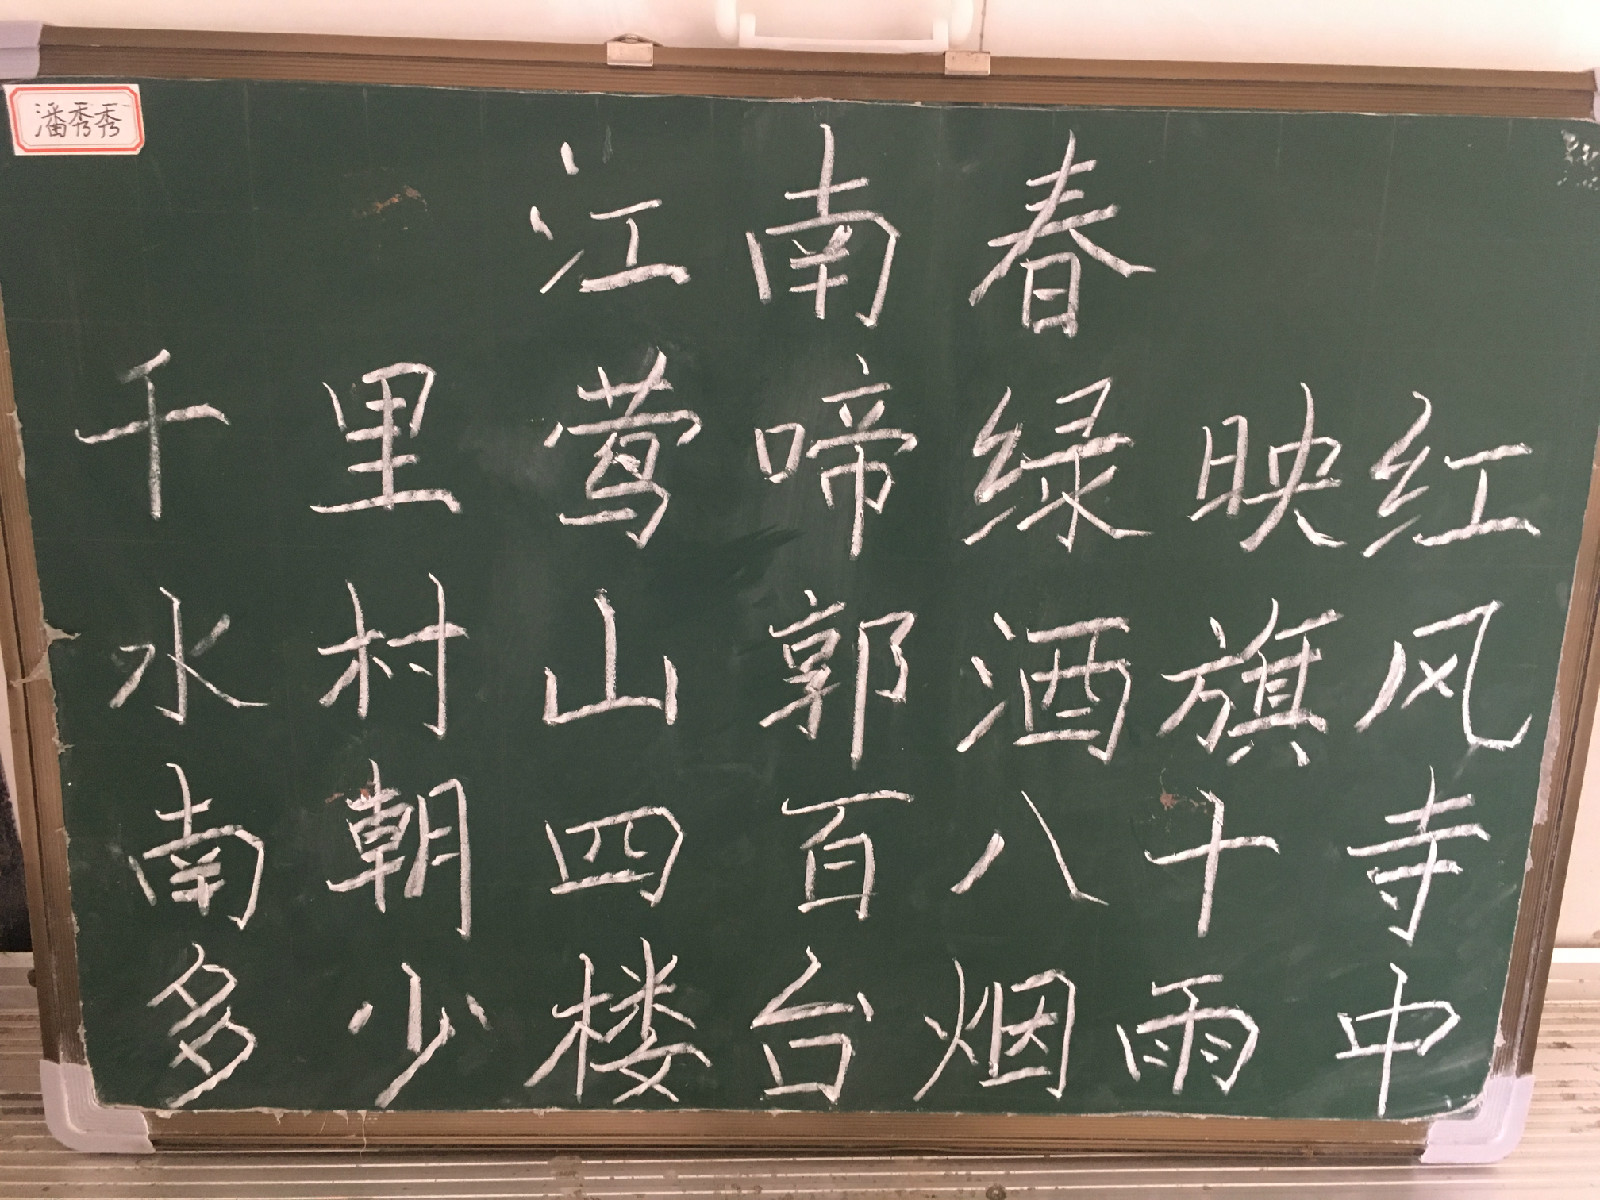 潘秀秀
江南春
千里莺啼绿映红
水村山郭酒旗风
南朝四百八十寺
多少楼台烟雨中